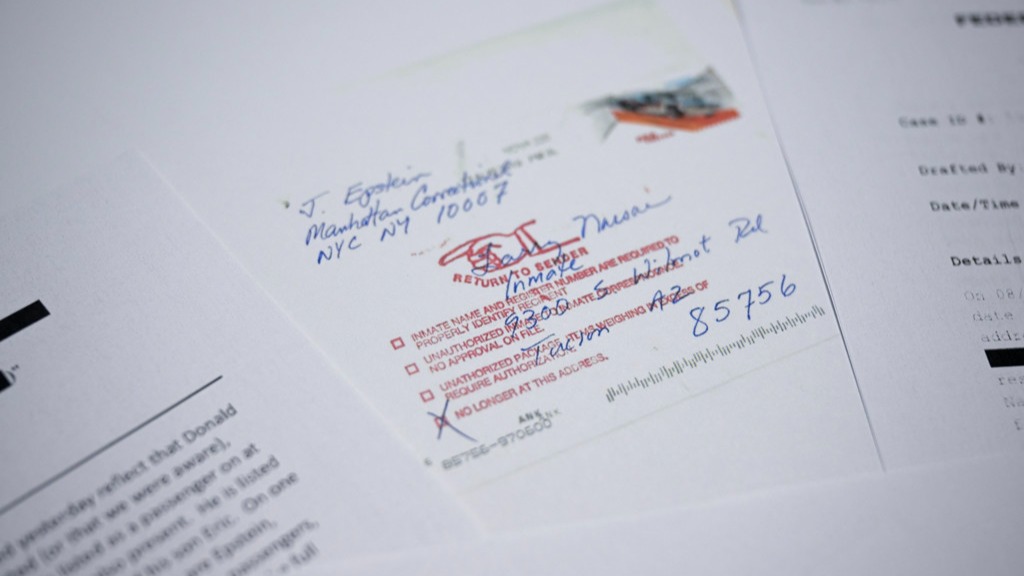 J. Epstein
Manhattan Correctional
NYC NY 10007
RETURN TO SENDER
Larry Nassar
Inmate
9300 S Wilmot Rd
Tucson AZ
85756
INMATE NAME AND REGISTER NUMBER ARE REQUIRED TO
PROPERLY IDENTIFY RECIPIENT
UNAUTHORIZED
NO APPROVAL ON FILE.
UNATHORIZED PACKAGE
REQUIRE AUTHORIZATION.
X NO LONGER AT THIS ADDRESS.
ANK
85756-970600
yesterday reflect that Donald
(or that we were aware),
listed as a passenger on at
also present. He is listed
his son Eric. On one
are Epstein,
passengers,
full
Case ID #:
Drafted By
Date/Time
Details
On 08/
date
addr
res